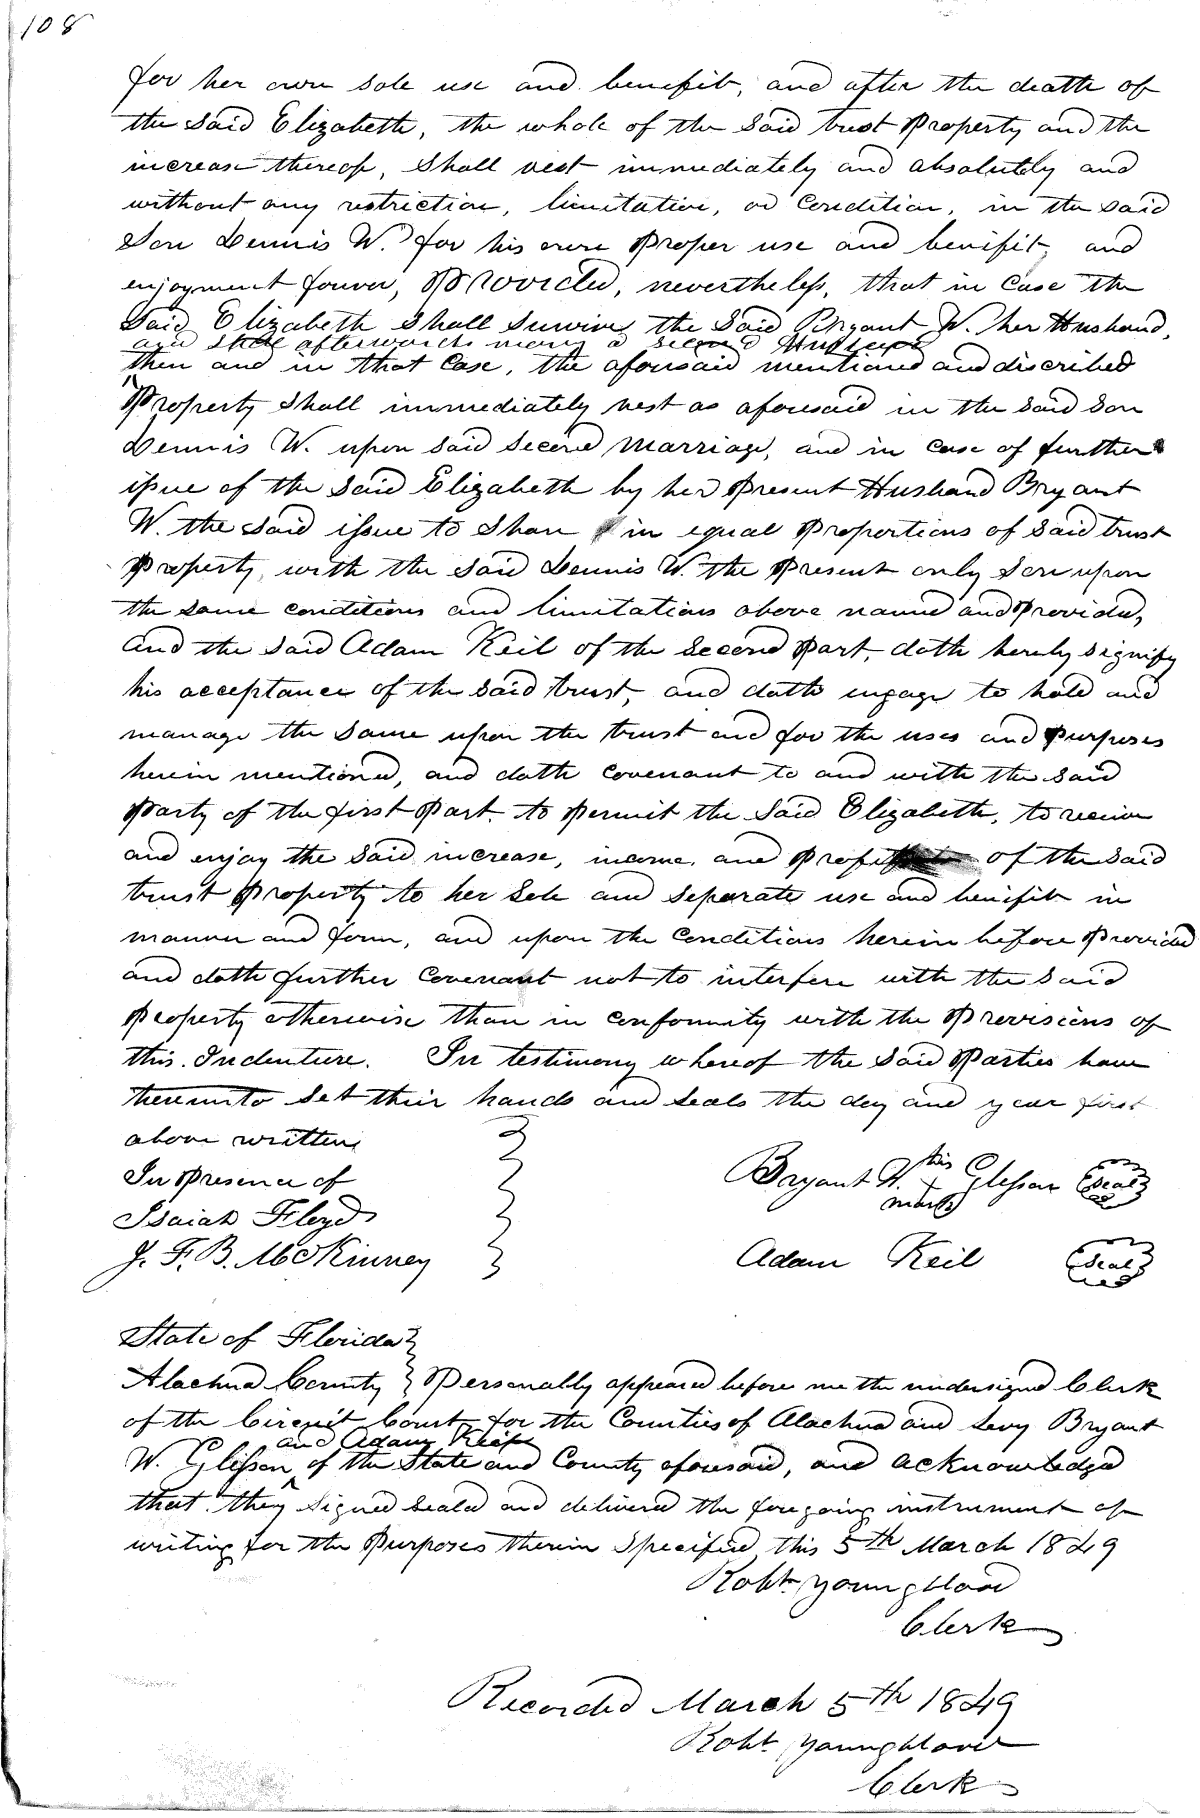 108
for her own sole use and benefit, and after the death of
the said Elizabeth, the whole of the said trust Property and the
increase thereof, shall vest immediately and absolutely and
without any restriction, limitation, or Condition, in the said
Son Dennis W. for his own proper use and benifit, and
enjoyment forever, Provided, nevertheless, that in Case the
Said Elizabeth shall survive the said Bryant W. her Husband,
and shall afterwards marry a second Husband
then and in that Case, the aforesaid mentioned and discribed
Property shall immediately vest as aforesaid in the said Son
Dennis W. upon said second marriage, and in case of further
issue of the said Elizabeth by her present Husband Bryant
W. the said issue to share in equal proportions of said trust
Property, with the said Dennis W. the present only Son upon
the same conditions and limitations above named and provided,
and the said Adam Keil of the second part, doth hereby signify
his acceptance of the said trust, and doth engage to hold and
manage the same upon the trust and for the uses and purposes
herein mentioned, and doth covenant to and with the said
Party of the first part to permit the said Elizabeth, to receive
and enjoy the said increase, income, and profits of the said
trust property to her sole and separate use and benifit in
manner and form, and upon the Conditions herein before provided
and doth further covenant not to interfere with the said
property otherwise than in conformity with the provisions of
this Indenture. In testimony whereof the said Parties have
thereunto set their hands and seals the day and year first
above written
In presence of
Isaiah Floyd
J. F. B. McKinney
his
Bryant W. + Glisson Seal
mark
Adam Keil Seal
State of Florida
Alachua County Personally appeared before me the undersigned Clerk
of the Circuit Court for the Counties of Alachua and Levy Bryant
and Adam Keil
W. Glisson ^ of the State and County aforesaid, and acknowledged
that they signed seald and delivered the foregoing instrument of
writing for the purposes therein specified this 5th March 1849
Robt. Youngblood
Clerk
Recorded March 5th 1849
Robt. Youngblood
Clerk